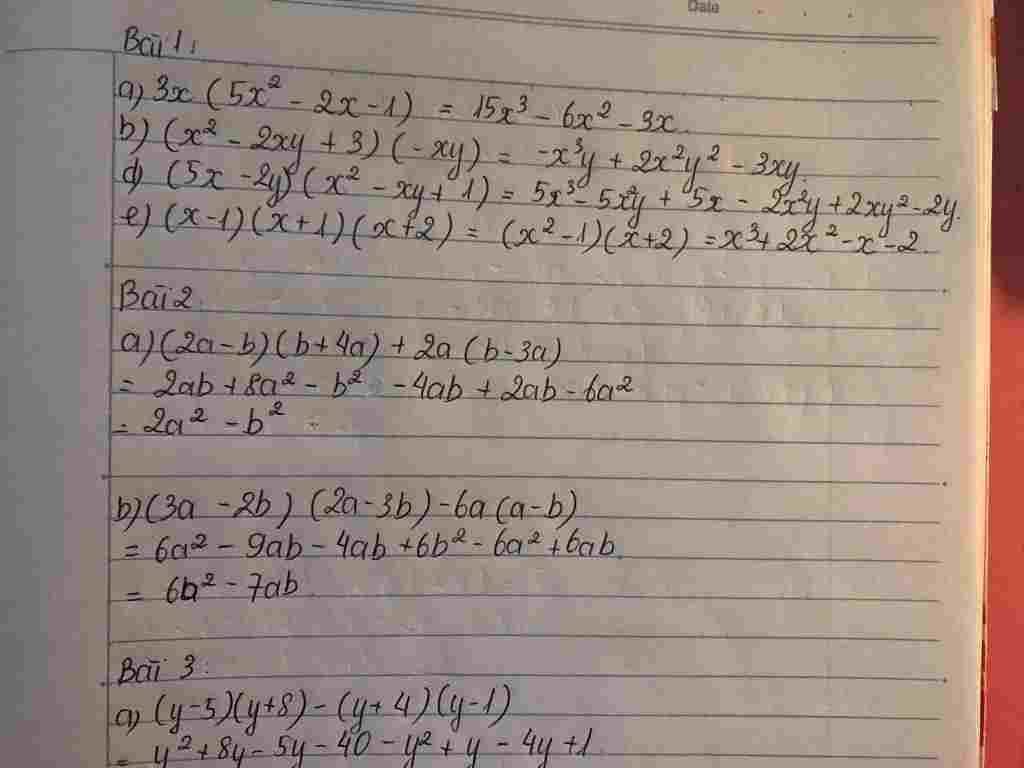 Date
Bài 1:
a) 3x (5x² - 2x - 1) = 15x³ - 6x² - 3x.
b) (x² - 2xy + 3) (-xy) = -x³y + 2x²y² - 3xy.
d) (5x - 2y) (x² - xy + 1) = 5x³ - 5x²y + 5x - 2x²y + 2xy² - 2y.
e) (x-1) (x+1) (x+2) = (x² - 1) (x+2) = x³ + 2x² - x - 2.
Bài 2:
a) (2a - b) (b + 4a) + 2a (b - 3a)
= 2ab + 8a² - b² - 4ab + 2ab - 6a²
= 2a² - b²
b) (3a - 2b) (2a - 3b) - 6a (a - b)
= 6a² - 9ab - 4ab + 6b² - 6a² + 6ab.
= 6b² - 7ab
Bài 3:
a) (y - 5)(y + 8) - (y + 4) (y - 1)
= y² + 8y - 5y - 40 - y² + y - 4y + 1